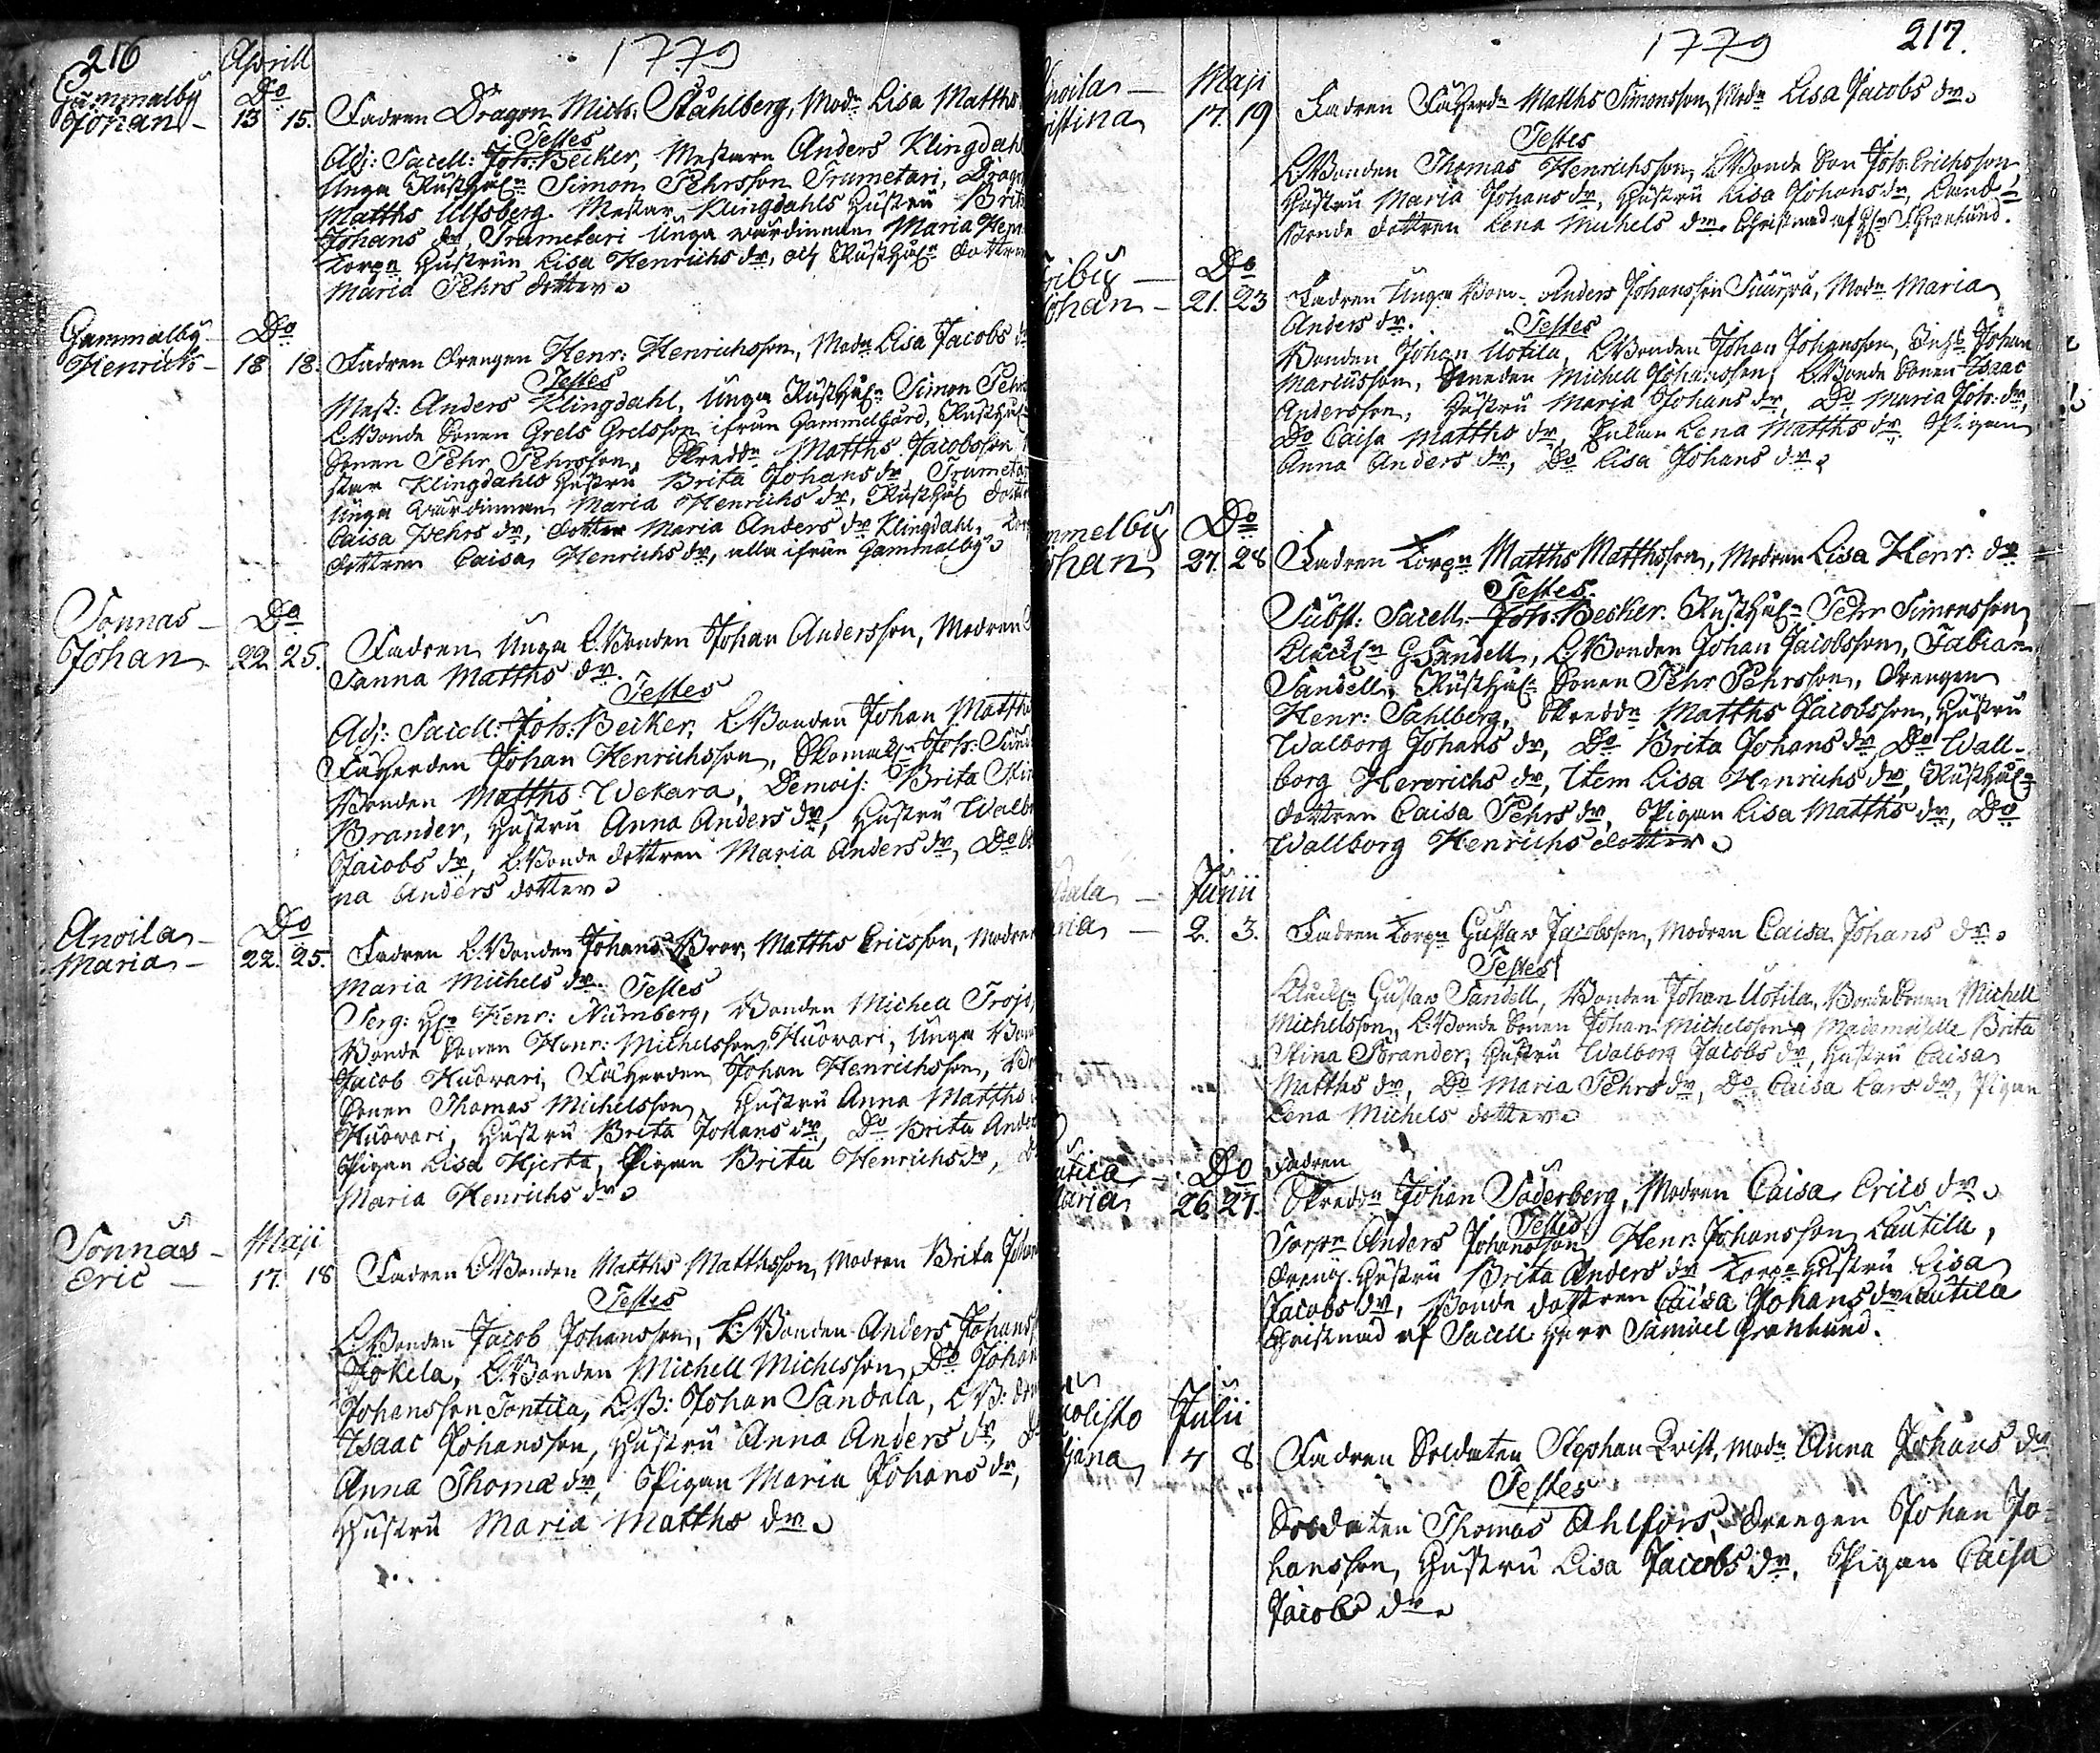 216 Aprill 1779
Gammalby Do
Johan - 13 15. Fadren Dragon Mich: Ståhlberg, Modn Lisa Matths
Testes
Adj: Sacell: Joh: Becker, Mestare Anders Klingdahl
Unga Rusthåln Simon Pehrsson Trumetari, Drag
Matths Ulfsberg. Mestar Klingdahls Hustru Brit
Johans dr, Trumetari Unga värdinnan Maria Hen
Torpn Hustrun Lisa Henrichs dr, och Rusthåln dottren
Maria Pehrs dotter
Gammalby - Do
Henrich - 18 18. Fadren Drengen Henr: Henrichsson, Modn Lisa Jacobs dr
Testes
Mast: Anders Klingdahl, Unga Rusthåln Simon Pehrs
L:Bonde Sonen Grels Grelsson ifrån Gammelgård, Rusthåln
Sonen Pehr Pehrsson, Skreddn Matths Jacobsson
star Klingdahls Hustru Brita Johans dr Trumeta
Unga Värdinnan Maria Henrichs dr, Rusthål dott
Caisa Pehrs dr, dotter Maria Anders dr Klingdahl, Tor
dottren Caisa Henrichs dr, alla ifrån Gammalby
Sonnas - Do
Johan 22 25. Fadren Unga L:Bonden Johan Andersson, Modren
Sanna Matths dr.
Testes
Adj: Sacell: Joh: Becker, L:Bonden Johan Matths
Fåherden Johan Henrichsson, Skomakn Joh: Sund
Bonden Matths Wekara, Demois: Brita Stin
Brander, Hustru Anna Anders dr, Hustru Walb
Jacobs dr, L:Bonde dottren Maria Anders dr, Do
na Anders dotter
Anoila - Do
Maria - 22. 25. Fadren L:Bonden Johans Bror, Matths Ericsson, Modren
Maria Michels dr. Testes
Serg: Hr Henr: Nürnberg, Bonden Michel Troj
Bonde Sonen Henr: Michelsson Huovari, Unga Bon
Jacob Huovari, Fåherden Johan Henrichsson,
Sonen Thomas Michelsson Hustru Anna Matths
Huovari, Hustru Brita Johans dr, Do Brita Ande
Pigan Lisa Hjerta, Pigan Brita Henrichs dr,
Maria Henrichs dr
Sonnas - Maji
Eric - 17. 18 Fadren L:Bonden Matths Matthsson, Modren Brita Johan
Testes
L:Bonden Jacob Johansson, L:Bonden Anders Johans
Jökela, L:Bonden Michell Michelsson, Do Johan
Johansson Tontila, L:B: Johan Sandala, L:B: dren
Isaac Johansson, Hustru Anna Anders dr,
Anna Thomæ dr, Pigan Maria Johans dr,
Hustru Maria Matths dr
1779 217.
noila - Maji
ristina 17. 19 Fadren Fåherdn Matths Simonsson, Modn Lisa Jacobs dr
Testes
L:Bonden Thomas Henrichsson, L:Bonde Son Joh: Erichsson,
Hustru Maria Johans dr, Hustru Lisa Johans dr, Land-
Bonde dottren Lena Michels dr. Christnad af Hr S: Granlund.
riby - Do
ohan - 21. 23 Fadren Unga Bon- Anders Johansson Suurpä, Modn Maria
Anders dr. Testes
Bonden Johan Uotila, L:Bonden Johan Johansson, Johan
Mariusson, Smeden Michell Johansson, L:Bonde Sonen Isaac
Andersson, Hustru Maria Johans dr, Do Maria Joh: dr,
Do Caisa Matths dr, Lena Matths dr. Pigan
Anna Anders dr, Do Lisa Johans dr
mmelby Do
ohan 27. 28 Fadren Torpn Matths Matthsson, Modren Lisa Henr: dr
Testes.
Subst: Sacell: Joh: Becker. Rusthåln Pehr Simonsson
G Sandell, L:Bonden Johan Jacobsson, Fabian
Sandell, Rusthåln Sonen Pehr Pehrsson, Drengen
Henr: Sahlberg, Skreddn Matths Jacobsson, Hustru
Walborg Johans dr, Do Brita Johans dr Do Wall-
borg Henrichs dr, Item Lisa Henrichs dr, Rusthåln
dottren Caisa Pehrs dr, Pigan Lisa Matths dr, Do
Wallborg Henrichs dotter
dala - Junii
ria - 2. 3. Fadren Torpn Gustaw Jacobsson, Modren Caisa Johans dr
Testes
Gustaw Sandell, Bonden Johan Uotila, Bonde Sonen Michell
Michelsson, L:Bonde Sonen Johan Michelsson Mademoiselle Brita
Stina Brander, Hustru Walborg Jacobs dr, Hustru Caisa
Matths dr, Do Maria Pehrs dr, Do Caisa Lars dr, Pigan
Lena Michels dotter
utila - Do Fadren
aria 26. 27. Skreddn Johan Söderberg, Modren Caisa Erics dr
Testes
Torpn Anders Johansson Henr: Johansson Lautila,
Dreng Hustru Brita Anders dr Torpn Hustru Lisa
Jacobs dr, Bonde dottren Caisa Johans dr Lautila
Christnad af Sacell Herr Samuel Granlund.
olisto Julii
jana 4 8 Fadren Soldaten Stephan Qvist, Modn Anna Johans dr
Testes
Soldaten Thomas Ahlfors, Drengen Johan Jo-
hansson, Hustru Lisa Jacobs dr, Pigan Caisa
Jacobs dr